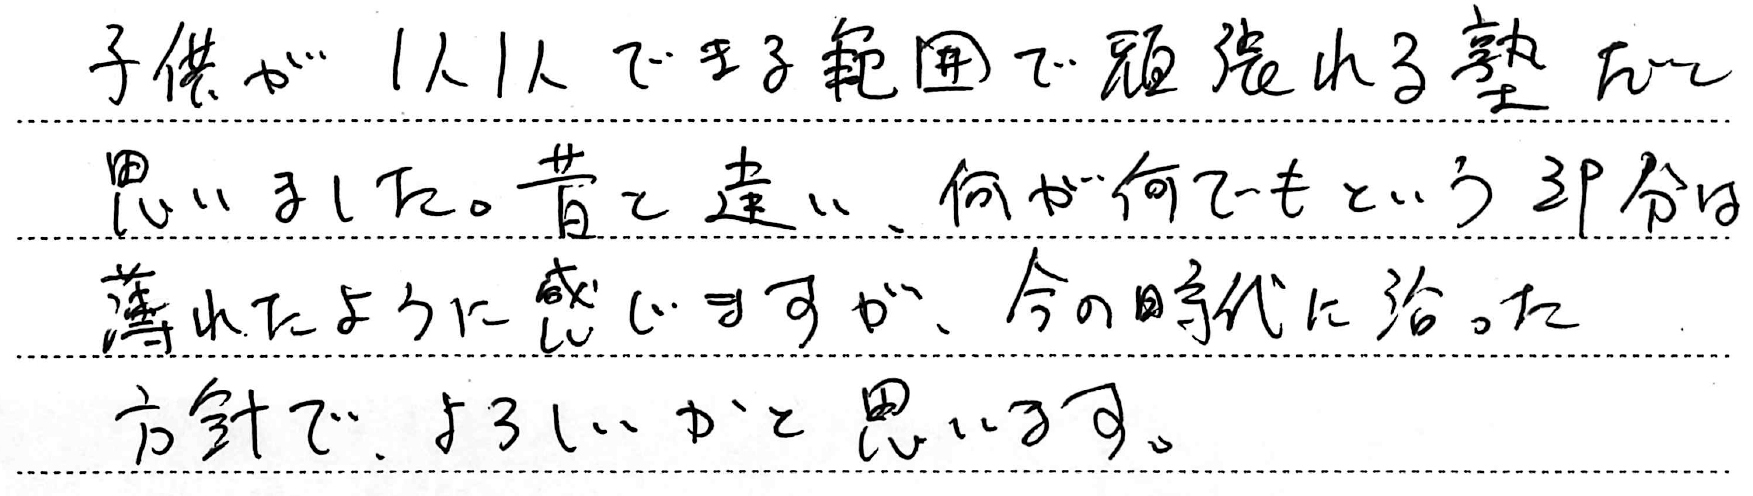 子供が1人1人できる範囲で頑張れる塾だと
思いました。昔と違い、何が何でもという部分は
薄れたように感じますが、今の時代に沿った
方針で、よろしいかと思います。